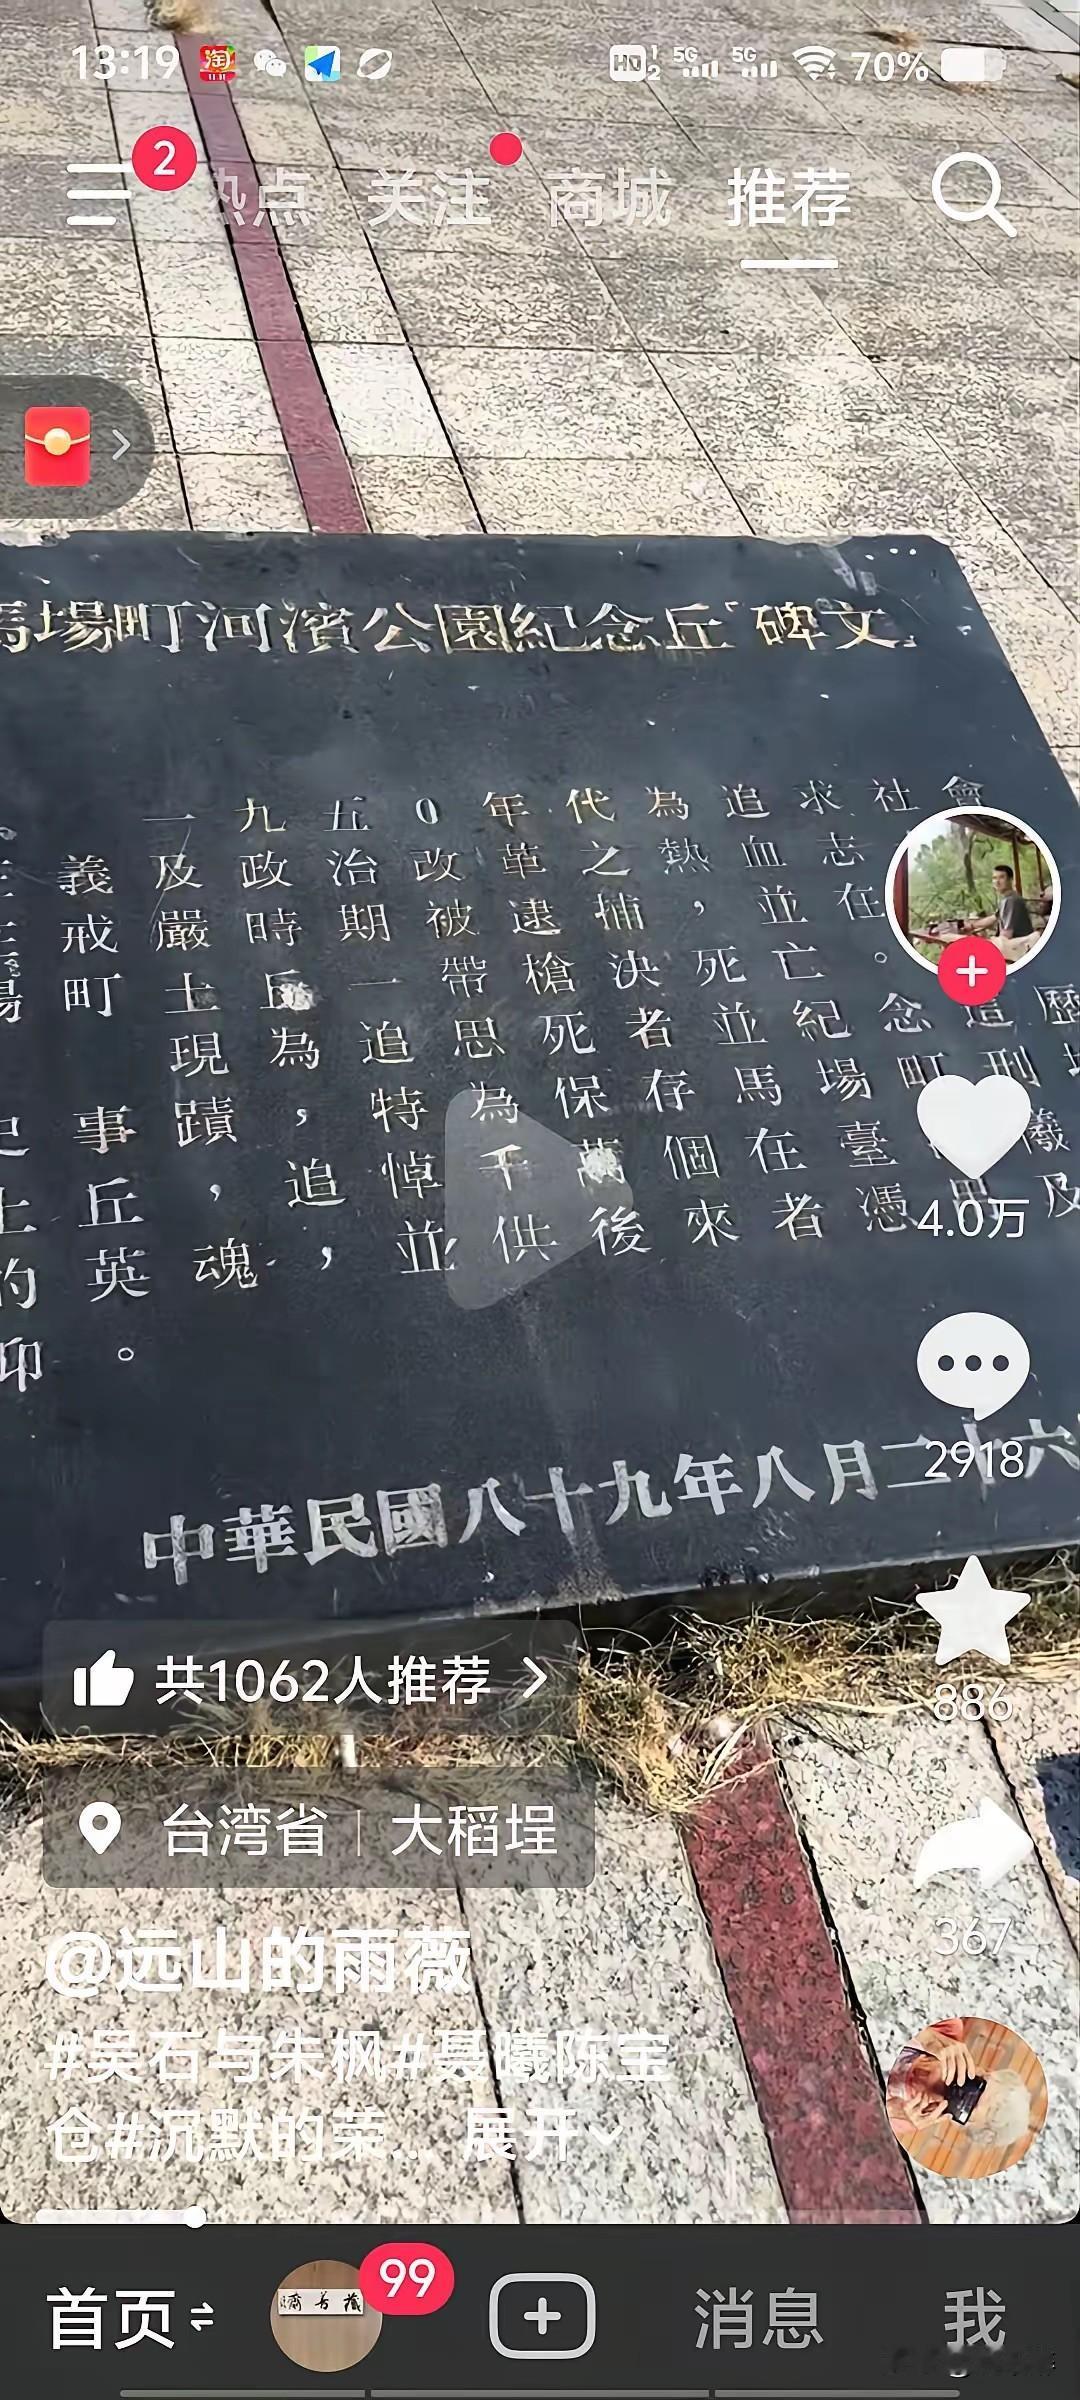 13:19
HD 1 2 5G 5G 70%
2
热点 关注 商城 推荐
馬場町河濱公園紀念丘「碑文」
一九五0年代為追求社會
義及政治改革之熱血志
戒嚴時期被逮捕，並在
場町土丘一帶槍決死亡。
現為追思死者並紀念這歷
史事蹟，特為保存馬場町刑場
土丘，追悼千萬個在臺
的英魂，並供後來者憑 及
仰。
中華民國八十九年八月二十六
4.0万
2918
886
367
共1062人推荐
台湾省 | 大稻埕
@远山的雨薇
#吴石与朱枫#聂曦陈宝
仓#沉默的荣... 展开
首页 99 消息 我